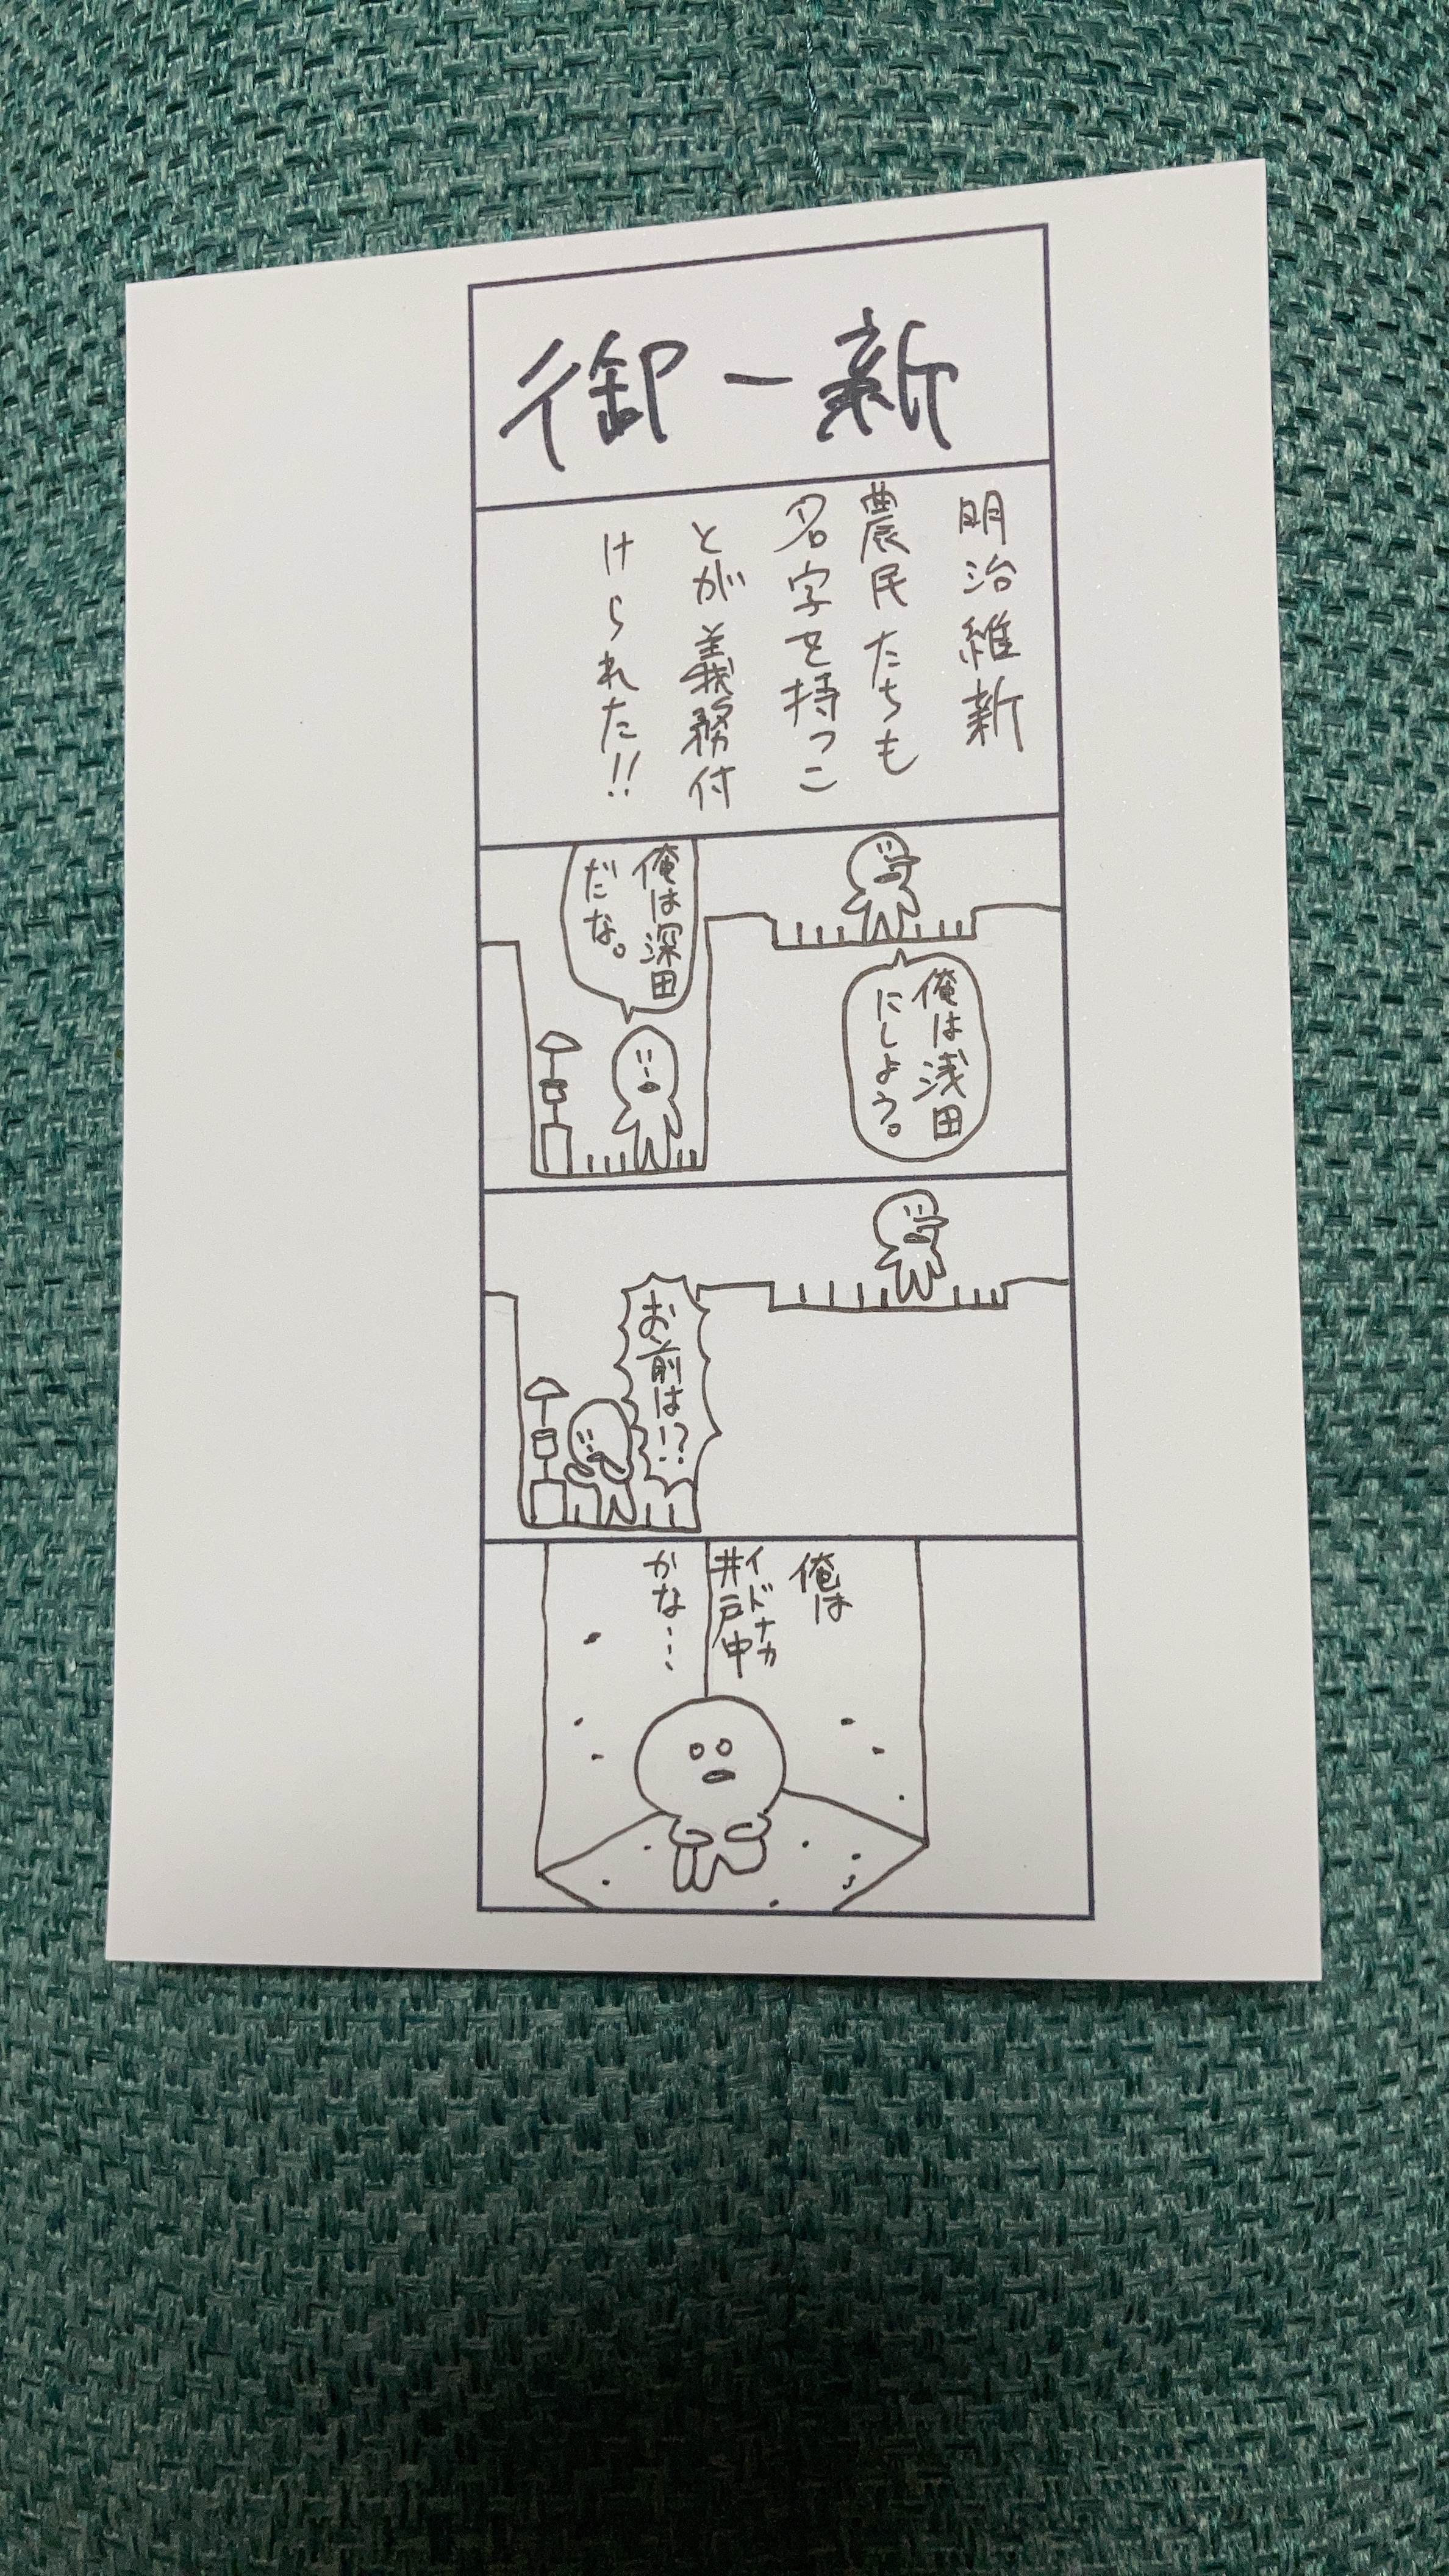 御一新
明治維新
農民たちも
名字を持つこ
とが義務付
けられた!!
俺は浅田
にしよう。
俺は深田
だな。
お前は!?
俺は
イドナカ
井戸中
かな…